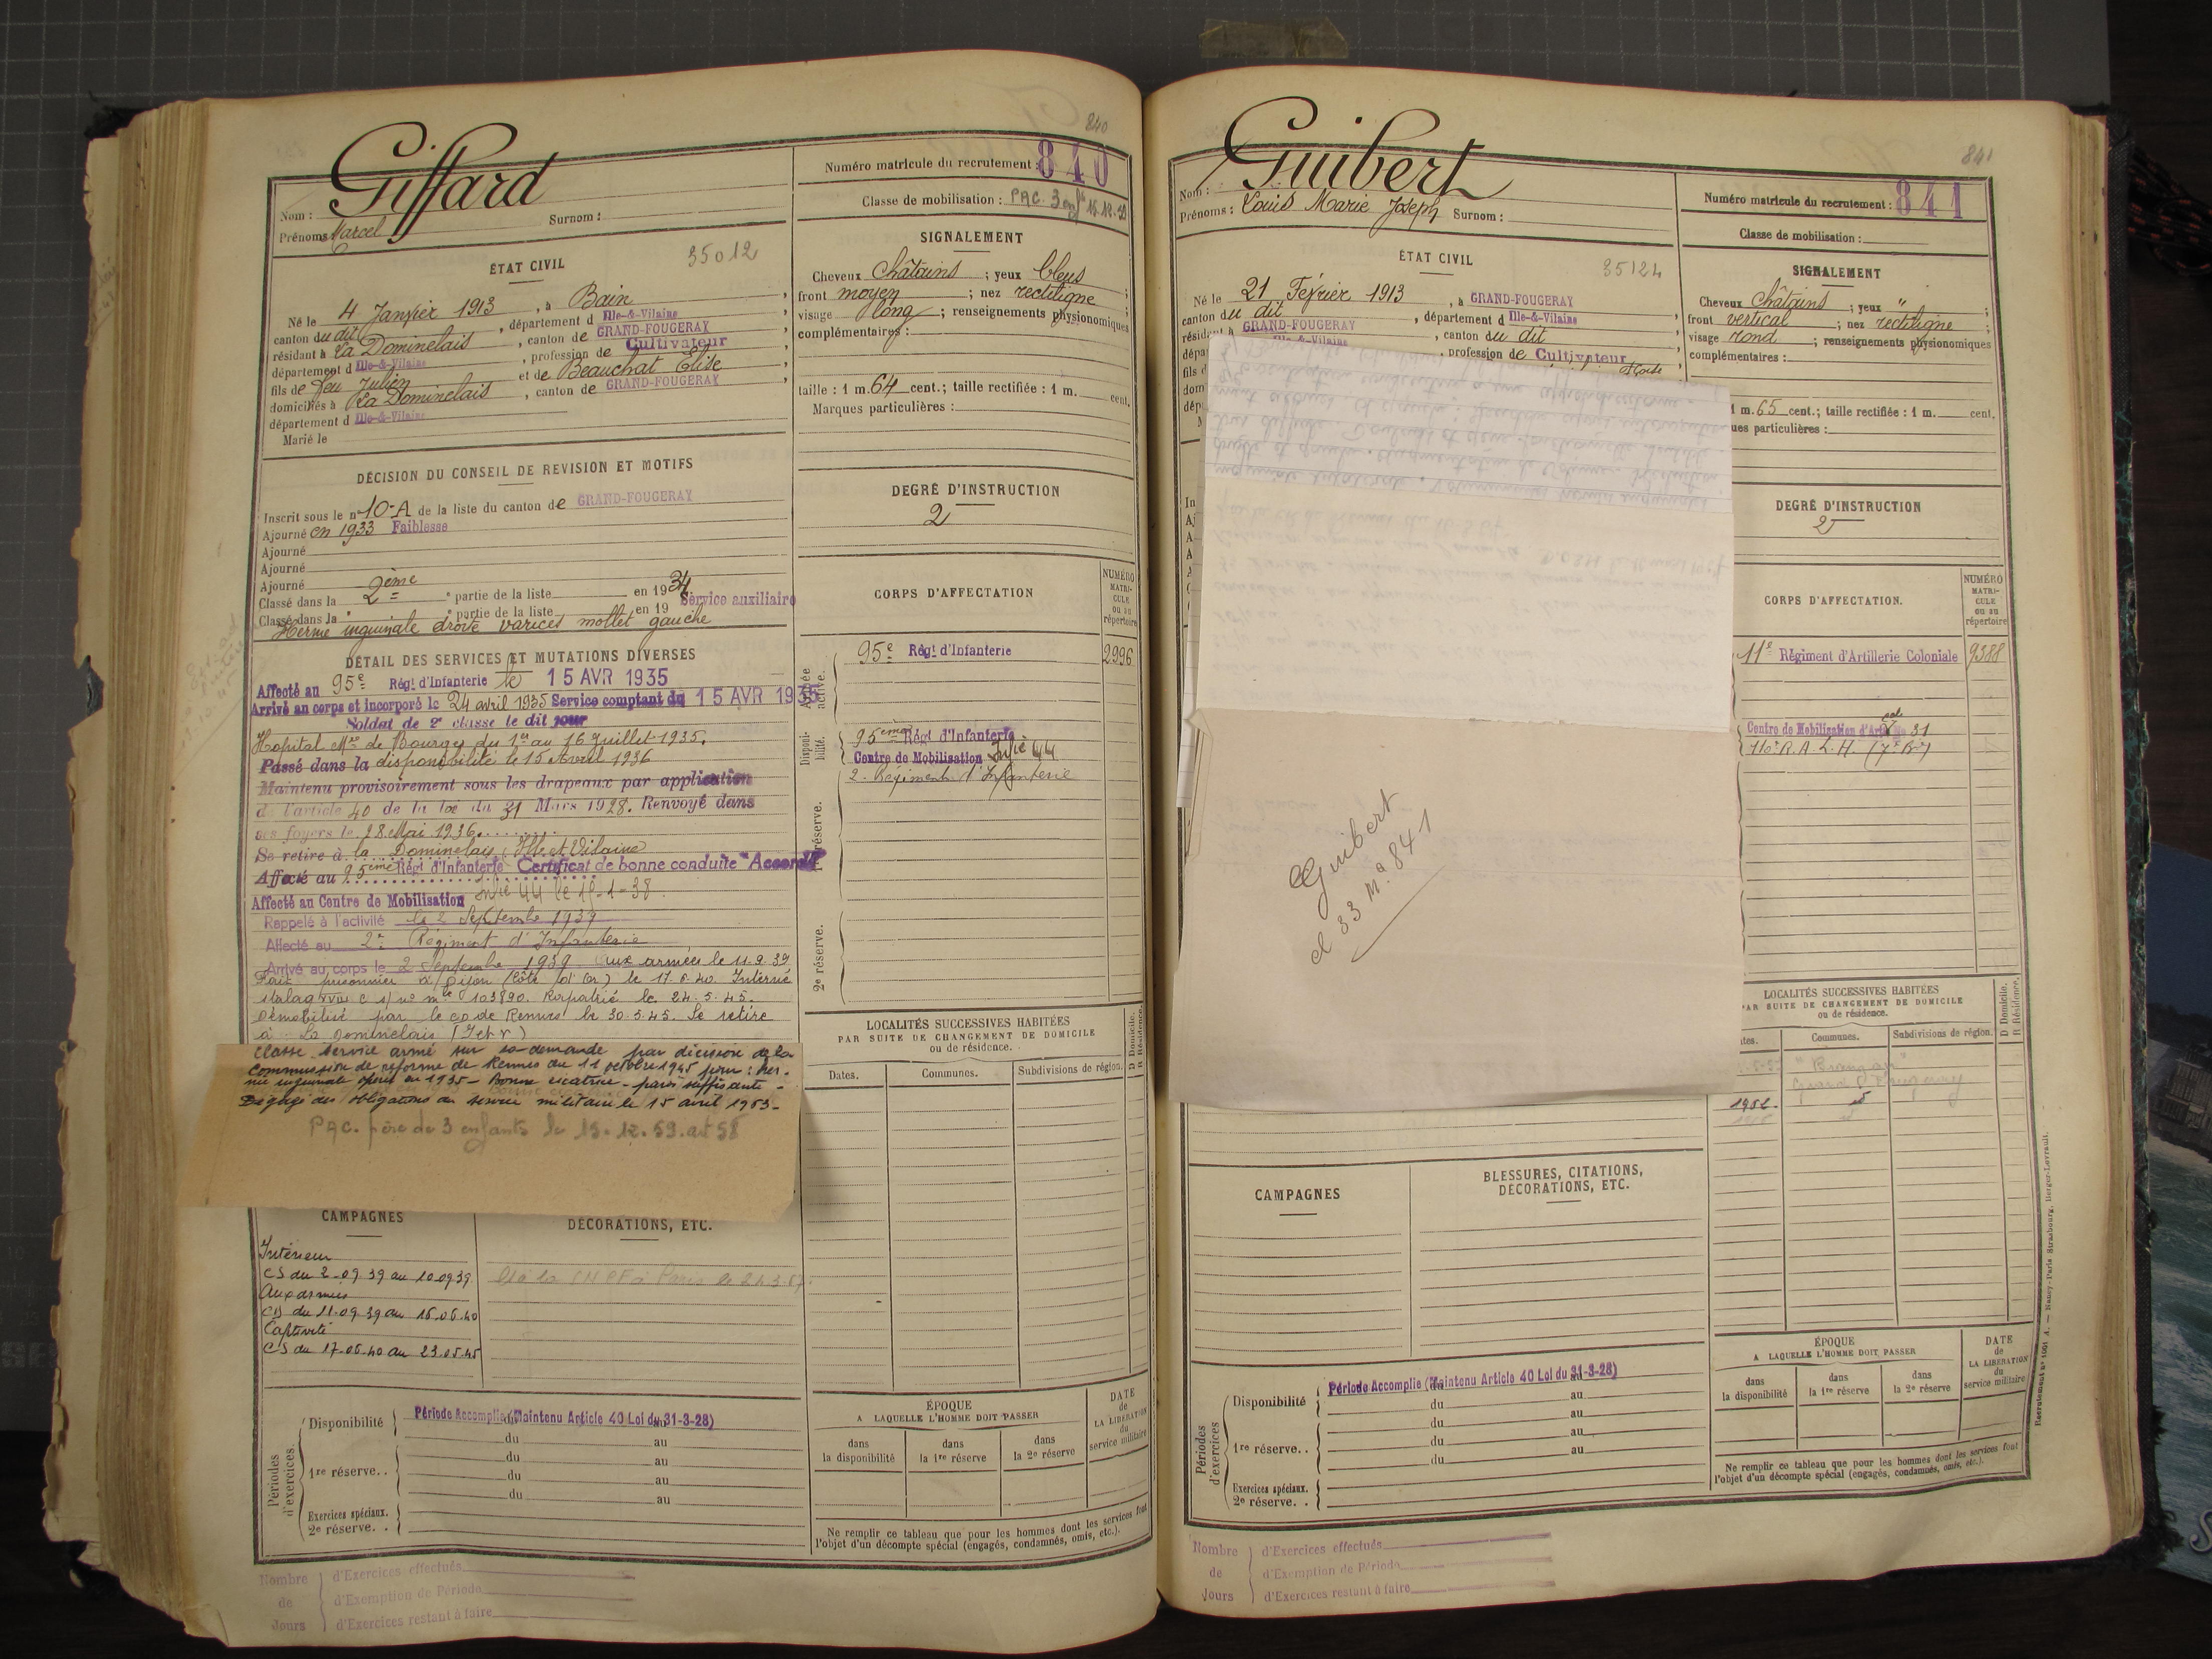 840
Giffard
Nom :
Surnom :
Prénoms Marcel
Numéro matricule du recrutement : 840
Classe de mobilisation : PAC. 3 enfts 15.12.59
ÉTAT CIVIL
35012
Né le 4 Janvier 1913, à Bain,
canton du dit, département d Ille-&-Vilaine
résidant à La Dominelais, canton de GRAND-FOUGERAY
département d Ille-&-Vilaine, profession de Cultivateur
fils de feu Julien et de Beauchat Elise
domiciliés à La Dominelais, canton de GRAND-FOUGERAY,
département d Ille-&-Vilaine
Marié le
SIGNALEMENT
Cheveux Châtains ; yeux bleus ;
front moyen ; nez rectiligne ;
visage long ; renseignements physionomiques
complémentaires :
taille : 1 m. 64 cent.; taille rectifiée : 1 m. cent.
Marques particulières :
DÉCISION DU CONSEIL DE REVISION ET MOTIFS
Inscrit sous le n° 10-A de la liste du canton de GRAND-FOUGERAY
Ajourné en 1933 Faiblesse
Ajourné
Ajourné
Ajourné
Classé dans la 2ème partie de la liste en 1934 Service auxiliaire
Classé dans la e partie de la liste en 19
Hernie inguinale droite varices mollet gauche
DEGRÉ D'INSTRUCTION
2
DÉTAIL DES SERVICES ET MUTATIONS DIVERSES
Affecté au 95e Régt d'Infanterie le 15 AVR 1935
Arrivé au corps et incorporé le 24 avril 1935 Service comptant du 15 AVR 1935
Soldat de 2e classe le dit jour
Hopital Mre de Bourges du 1er au 16 Juillet 1935.
Passé dans la disponibilité le 15 Avril 1936
Maintenu provisoirement sous les drapeaux par application
de l'article 40 de la loi du 31 Mars 1928. Renvoyé dans
ses foyers le 28 Mai 1936.
Se retire à la Dominelais (Ille et Vilaine
Affecté au 95eme Régt d'Infanterie Certificat de bonne conduite "Accordé"
Affecté au Centre de Mobilisation Infie 44 le 15-1-38.
Rappelé à l'activité le 2 Septembre 1939
Affecté au 2e Régiment d'Infanterie
Arrivé au corps le 2 Septembre 1939 Aux armées le 11.9.39
Fait prisonnier à Dijon (Côte d'Or) le 17.6.40. Interné
stalag XVII C s/ no mle 103890. Rapatrié le 24.5.45.
Démobilisé par le de Rennes le 30.5.45. Se retire
à La Dominelais (I et V)
Classé service armé sur sa demande par décision de la
Commission de réforme de Rennes du 11 octobre 1945 pour : her-
nie inguinale opérée en 1935 - Bonne cicatrice - paroi suffisante -
Dégagé des obligations du service militaire le 15 avril 1953 -
PAC. père de 3 enfants le 15.12.59. art 58
CORPS D'AFFECTATION
NUMÉRO MATRICULE ou au répertoire
Armée active.
95e Régt d'Infanterie 2996
Disponibilité.
95ème Régt d'Infanterie
Centre de Mobilisation Infie 44
2e Régiment d'Infanterie
1re réserve.
2e réserve.
LOCALITÉS SUCCESSIVES HABITÉES
PAR SUITE DE CHANGEMENT DE DOMICILE
ou de résidence.
D Domicile. R Résidence.
Dates. Communes. Subdivisions de région.
CAMPAGNES
DÉCORATIONS, ETC.
Intérieur
CS du 2-09.39 au 10.09.39
Aux armées
CD du 11.09.39 au 16.06.40
Captivité
CS du 17-06-40 au 23.05.45
Périodes d'exercices.
Disponibilité Période Accomplie (Maintenu Article 40 Loi du 31-3-28)
du au
1re réserve. . du au
du au
du au
Exercices spéciaux.
2e réserve. .
ÉPOQUE
A LAQUELLE L'HOMME DOIT PASSER
dans la disponibilité
dans la 1re réserve
dans la 2e réserve
DATE de LA LIBÉRATION du service militaire
Ne remplir ce tableau que pour les hommes dont les services font
l'objet d'un décompte spécial (engagés, condamnés, omis, etc.).
Nombre de Jours
d'Exercices effectués
d'Exemption de Période
d'Exercices restant à faire
841
Guibert
Nom :
Prénoms : Louis Marie Joseph Surnom :
Numéro matricule du recrutement : 841
Classe de mobilisation :
ÉTAT CIVIL
35124
Né le 21 Février 1913, à GRAND-FOUGERAY
canton du dit, département d Ille-&-Vilaine
GRAND-FOUGERAY, canton du dit
Ille-&-Vilaine, profession de Cultivateur
SIGNALEMENT
Cheveux Châtains ; yeux " ;
front vertical ; nez rectiligne ;
visage rond ; renseignements physionomiques
complémentaires :
1 m. 65 cent.; taille rectifiée : 1 m. cent.
ues particulières :
DEGRÉ D'INSTRUCTION
2
CORPS D'AFFECTATION.
NUMÉRO MATRICULE ou au répertoire
11e Régiment d'Artillerie Coloniale 9388
Centre de Mobilisation d'Artie Cole No 31
110e R.A.L.H. (7e Bie)
Guibert
cl 33 No 841
LOCALITÉS SUCCESSIVES HABITÉES
PAR SUITE DE CHANGEMENT DE DOMICILE
ou de résidence.
D Domicile. R Résidence.
Communes. Subdivisions de région.
Grand Fougeray
1952.
CAMPAGNES
BLESSURES, CITATIONS,
DÉCORATIONS, ETC.
Périodes d'exercices
Disponibilité Période Accomplie (Maintenu Article 40 Loi du 31-3-28)
du au
du au
1re réserve. . du au
du au
du
Exercices spéciaux.
2e réserve. .
ÉPOQUE
A LAQUELLE L'HOMME DOIT PASSER
dans la disponibilité
dans la 1re réserve
dans la 2e réserve
DATE de LA LIBÉRATION du service militaire
Ne remplir ce tableau que pour les hommes dont les services font
l'objet d'un décompte spécial (engagés, condamnés, omis, etc.).
Nombre de Jours
d'Exercices effectués
d'Exemption de Période
d'Exercices restant à faire
Recrutement No 1001 A. — Nancy-Paris Strasbourg, Berger-Levrault.